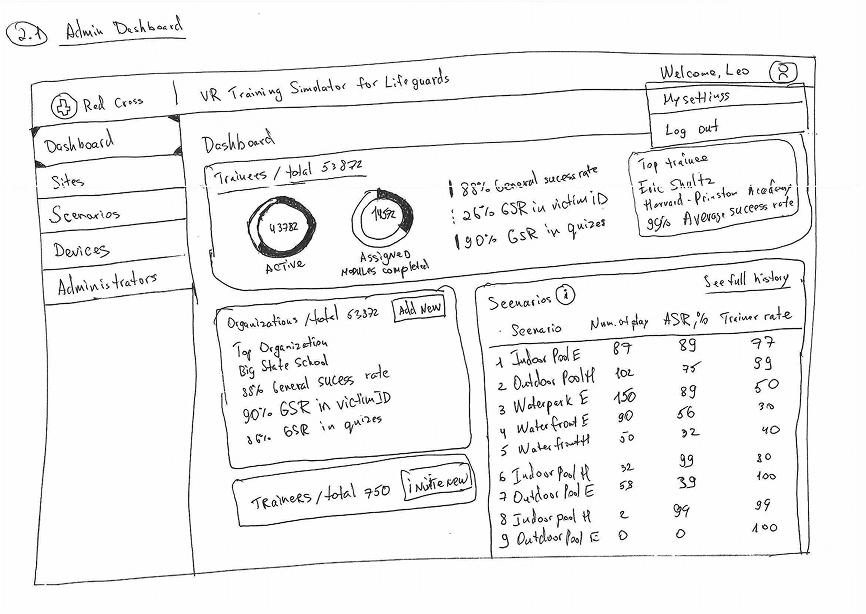 2.1 Admin Dashboard
Red Cross
VR Training Simolator for Lifeguards
Welcome, Leo
My settings
Log out
Dashboard
Sites
Scenarios
Devices
Administrators
Dashboard
Trainees / total 53872
43782
ACTIVE
14592
Assigned
modules completed
88% General sucess rate
26% GSR in victim ID
90% GSR in quizes
Top trainee
Eric Shultz
Harvard-Prinston Academy
99% Average success rate
Organizations / total 53872
Add New
Top Organization
Big State School
88% General sucess rate
90% GSR in victim ID
86% GSR in quizes
Trainers / total 750
invite new
Scenarios i
See full history
Scenario Num. of play ASR, % Trainer rate
1 Indoor Pool E 87 89 77
2 Outdoor Pool H 102 75 99
3 Waterpark E 150 89 50
4 Waterfront E 90 56 30
5 Waterfront H 50 32 40
6 Indoor Pool H 32 99 80
7 Outdoor Pool E 58 39 100
8 Indoor pool H 2 99 99
9 Outdoor Pool E 0 0 100